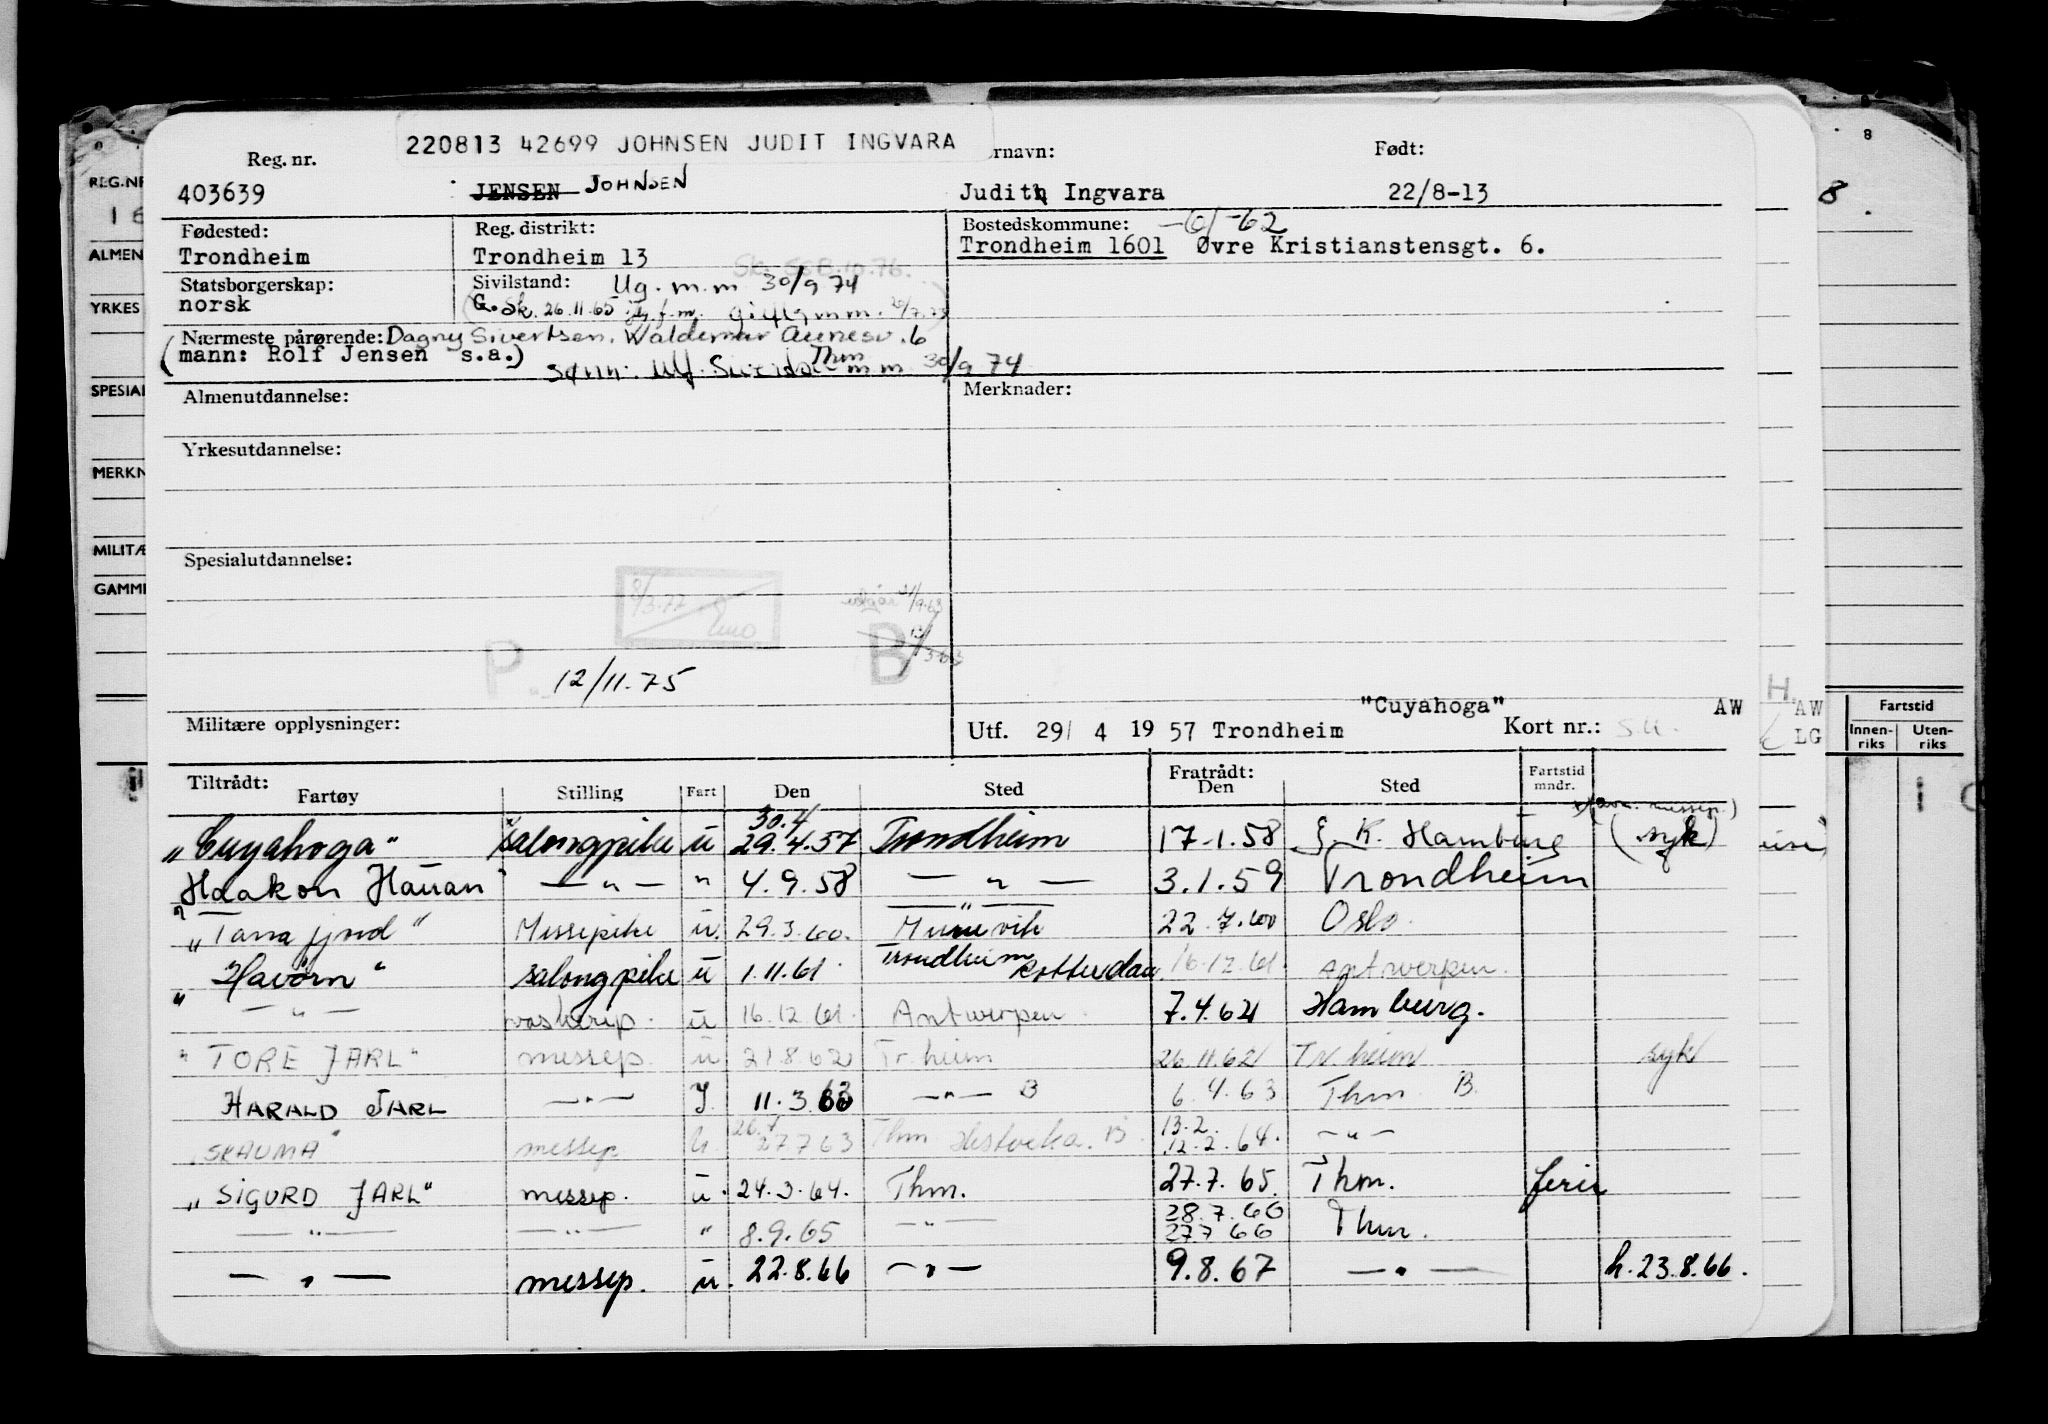 220813 42699 JOHNSEN JUDIT INGVARA
Reg. nr. rnavn: Født:
403639 JENSEN JOHNSEN Judith Ingvara 22/8-13
Fødested: Reg. distrikt: Bostedskommune: -61-62
Trondheim Trondheim 13 Trondheim 1601 Øvre Kristianstensgt. 6.
Statsborgerskap: Sivilstand: Ug. m.m 30/9 74
norsk G. Sk. 26.11.65 gift m.m.
Nærmeste pårørende: Dagny Sivertsen. Waldemar Aunesv. 6
(mann: Rolf Jensen s.a.) Thm
sønn: Ulf m.m. 30/9 74
Almenutdannelse: Merknader:
Yrkesutdannelse:
Spesialutdannelse:
8/3.77
utgår 21/9.63
P B
12/11.75
Militære opplysninger: Utf. 29/ 4 1957 Trondheim "Cuyahoga" Kort nr.: AW
Tiltrådt: Fratrådt: Fartstid
Fartøy Stilling Fart Den Sted Den Sted mndr.
30.4
"Cuyahoga" salongpike u 29.4.57 Trondheim 17.1.58 Hamburg (syk)
Haakon Hauan — " — " 4.9.58 — " — 3.1.59 Trondheim
"Tanafjord" Messepike u. 29.3.60. — " — Munkvik 22.7.60 Oslo.
"Havørn" salongpike u 1.11.61 Trondheim Rotterdam 16.12.61 Antwerpen.
— " — vaskerip. u 16.12.61 Antwerpen. 7.4.62 Hamburg.
"TORE JARL" messep. u 21.8.62 Tr.heim 26.11.62 Tr.heim syk
HARALD JARL — " — J 11.3.63 — " — B 6.4.63 Thm B.
"SKAUMA" messep u. 26.7 27.7 63 Thm Hestvika. B. 13.2. 12.2.64. — " —
"SIGURD JARL" messep. u. 24.3.64. Thm. 27.7.65. Thm. ferie
— " — — " — " 8.9.65 — " — 28.7.66 27.7 66 Thm.
— " — messep. u. 22.8.66 — " — 9.8.67 — " — h. 23.8.66.
REG.NR
ALMEN
YRKES
SPESIAL
MERKN
MILITÆ
GAMME
8
8
H.
AW
LG
Fartstid
Innen-riks Uten-riks